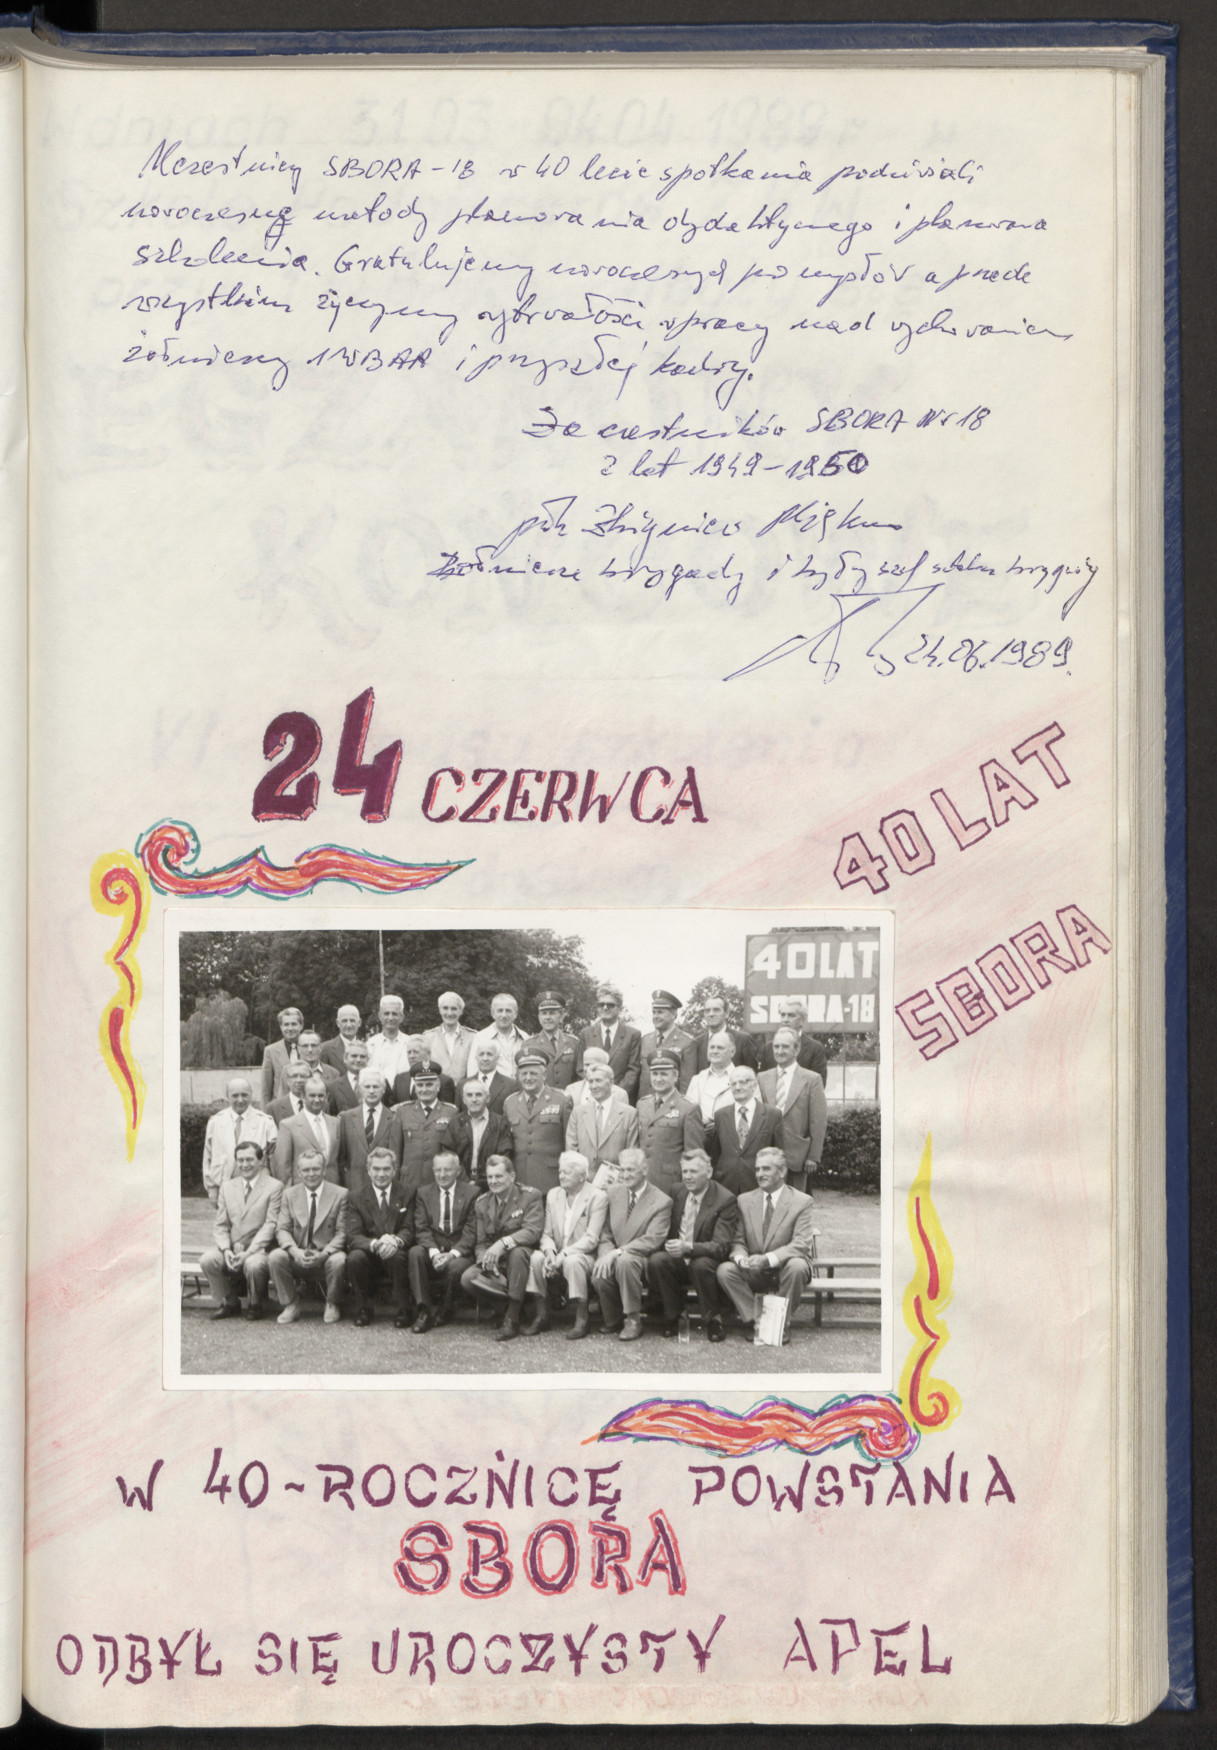 Uczestnicy SBORA-18 w 40 lecie spotkania podziwiali
nowoczesne metody planowania dydaktycznego i planowania
szkolenia. Gratulujemy nowoczesnych pomysłów a przede
wszystkim życzymy wytrwałości w pracy nad wychowaniem
żołnierzy 1WBAR i przyszłej kadry.
Za uczestników SBORA Nr 18
z lat 1949-1950
płk Zbigniew
Żołnierz brygady i były szef sztabu brygady
24.06.1989.
24 CZERWCA
40 LAT
SBORA
40 LAT
SBORA-18
W 40-ROCZNICĘ POWSTANIA
SBORA
ODBYŁ SIĘ UROCZYSTY APEL